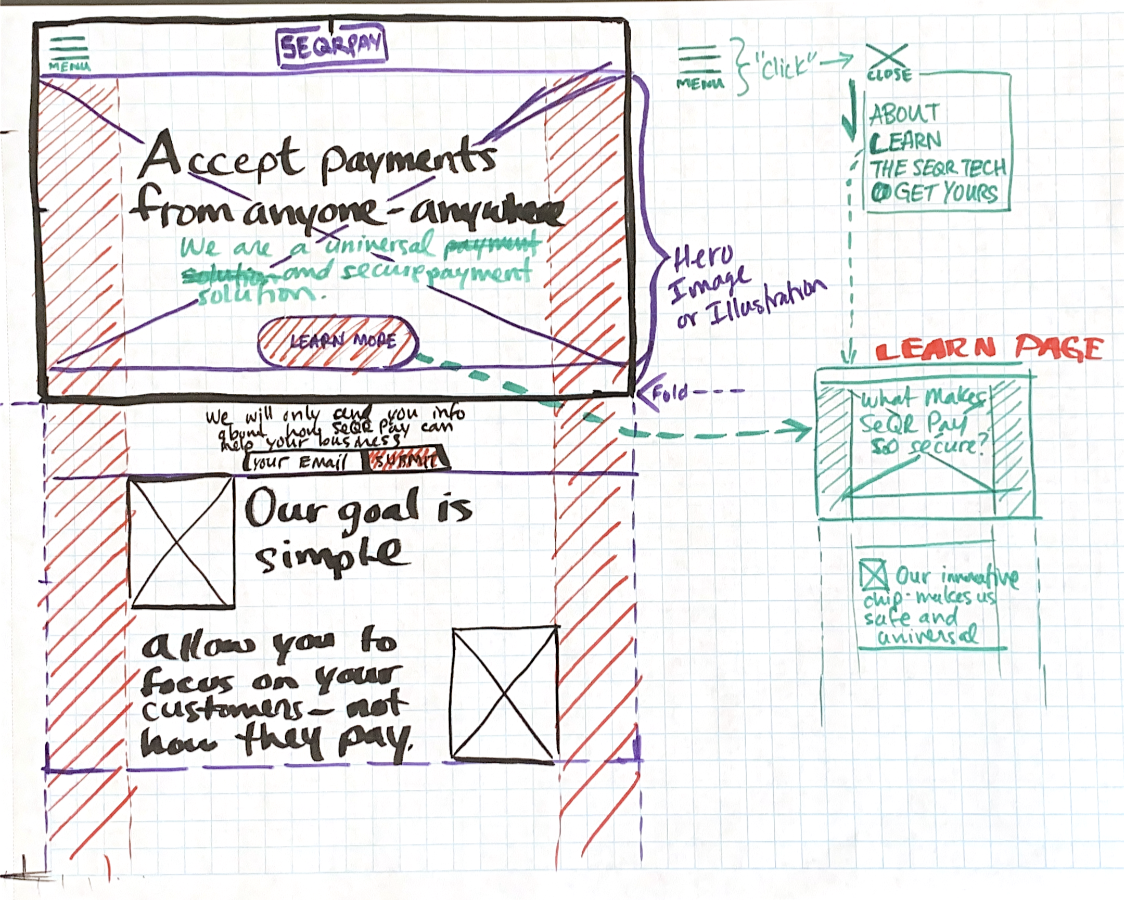 MENU
SEQRPAY
Accept payments
from anyone - anywhere
We are a universal payment
solution and secure payment
solution.
LEARN MORE
We will only send you info
about how SeQR Pay can
help your business
your Email
SUBMIT
Our goal is
simple
allow you to
focus on your
customers - not
how they pay.
MENU
"Click"
CLOSE
ABOUT
LEARN
THE SEQR TECH
GET YOURS
Hero
Image
or Illustration
Fold
LEARN PAGE
What Makes
SeQR Pay
so secure?
Our innovative
chip makes us
safe and
universal